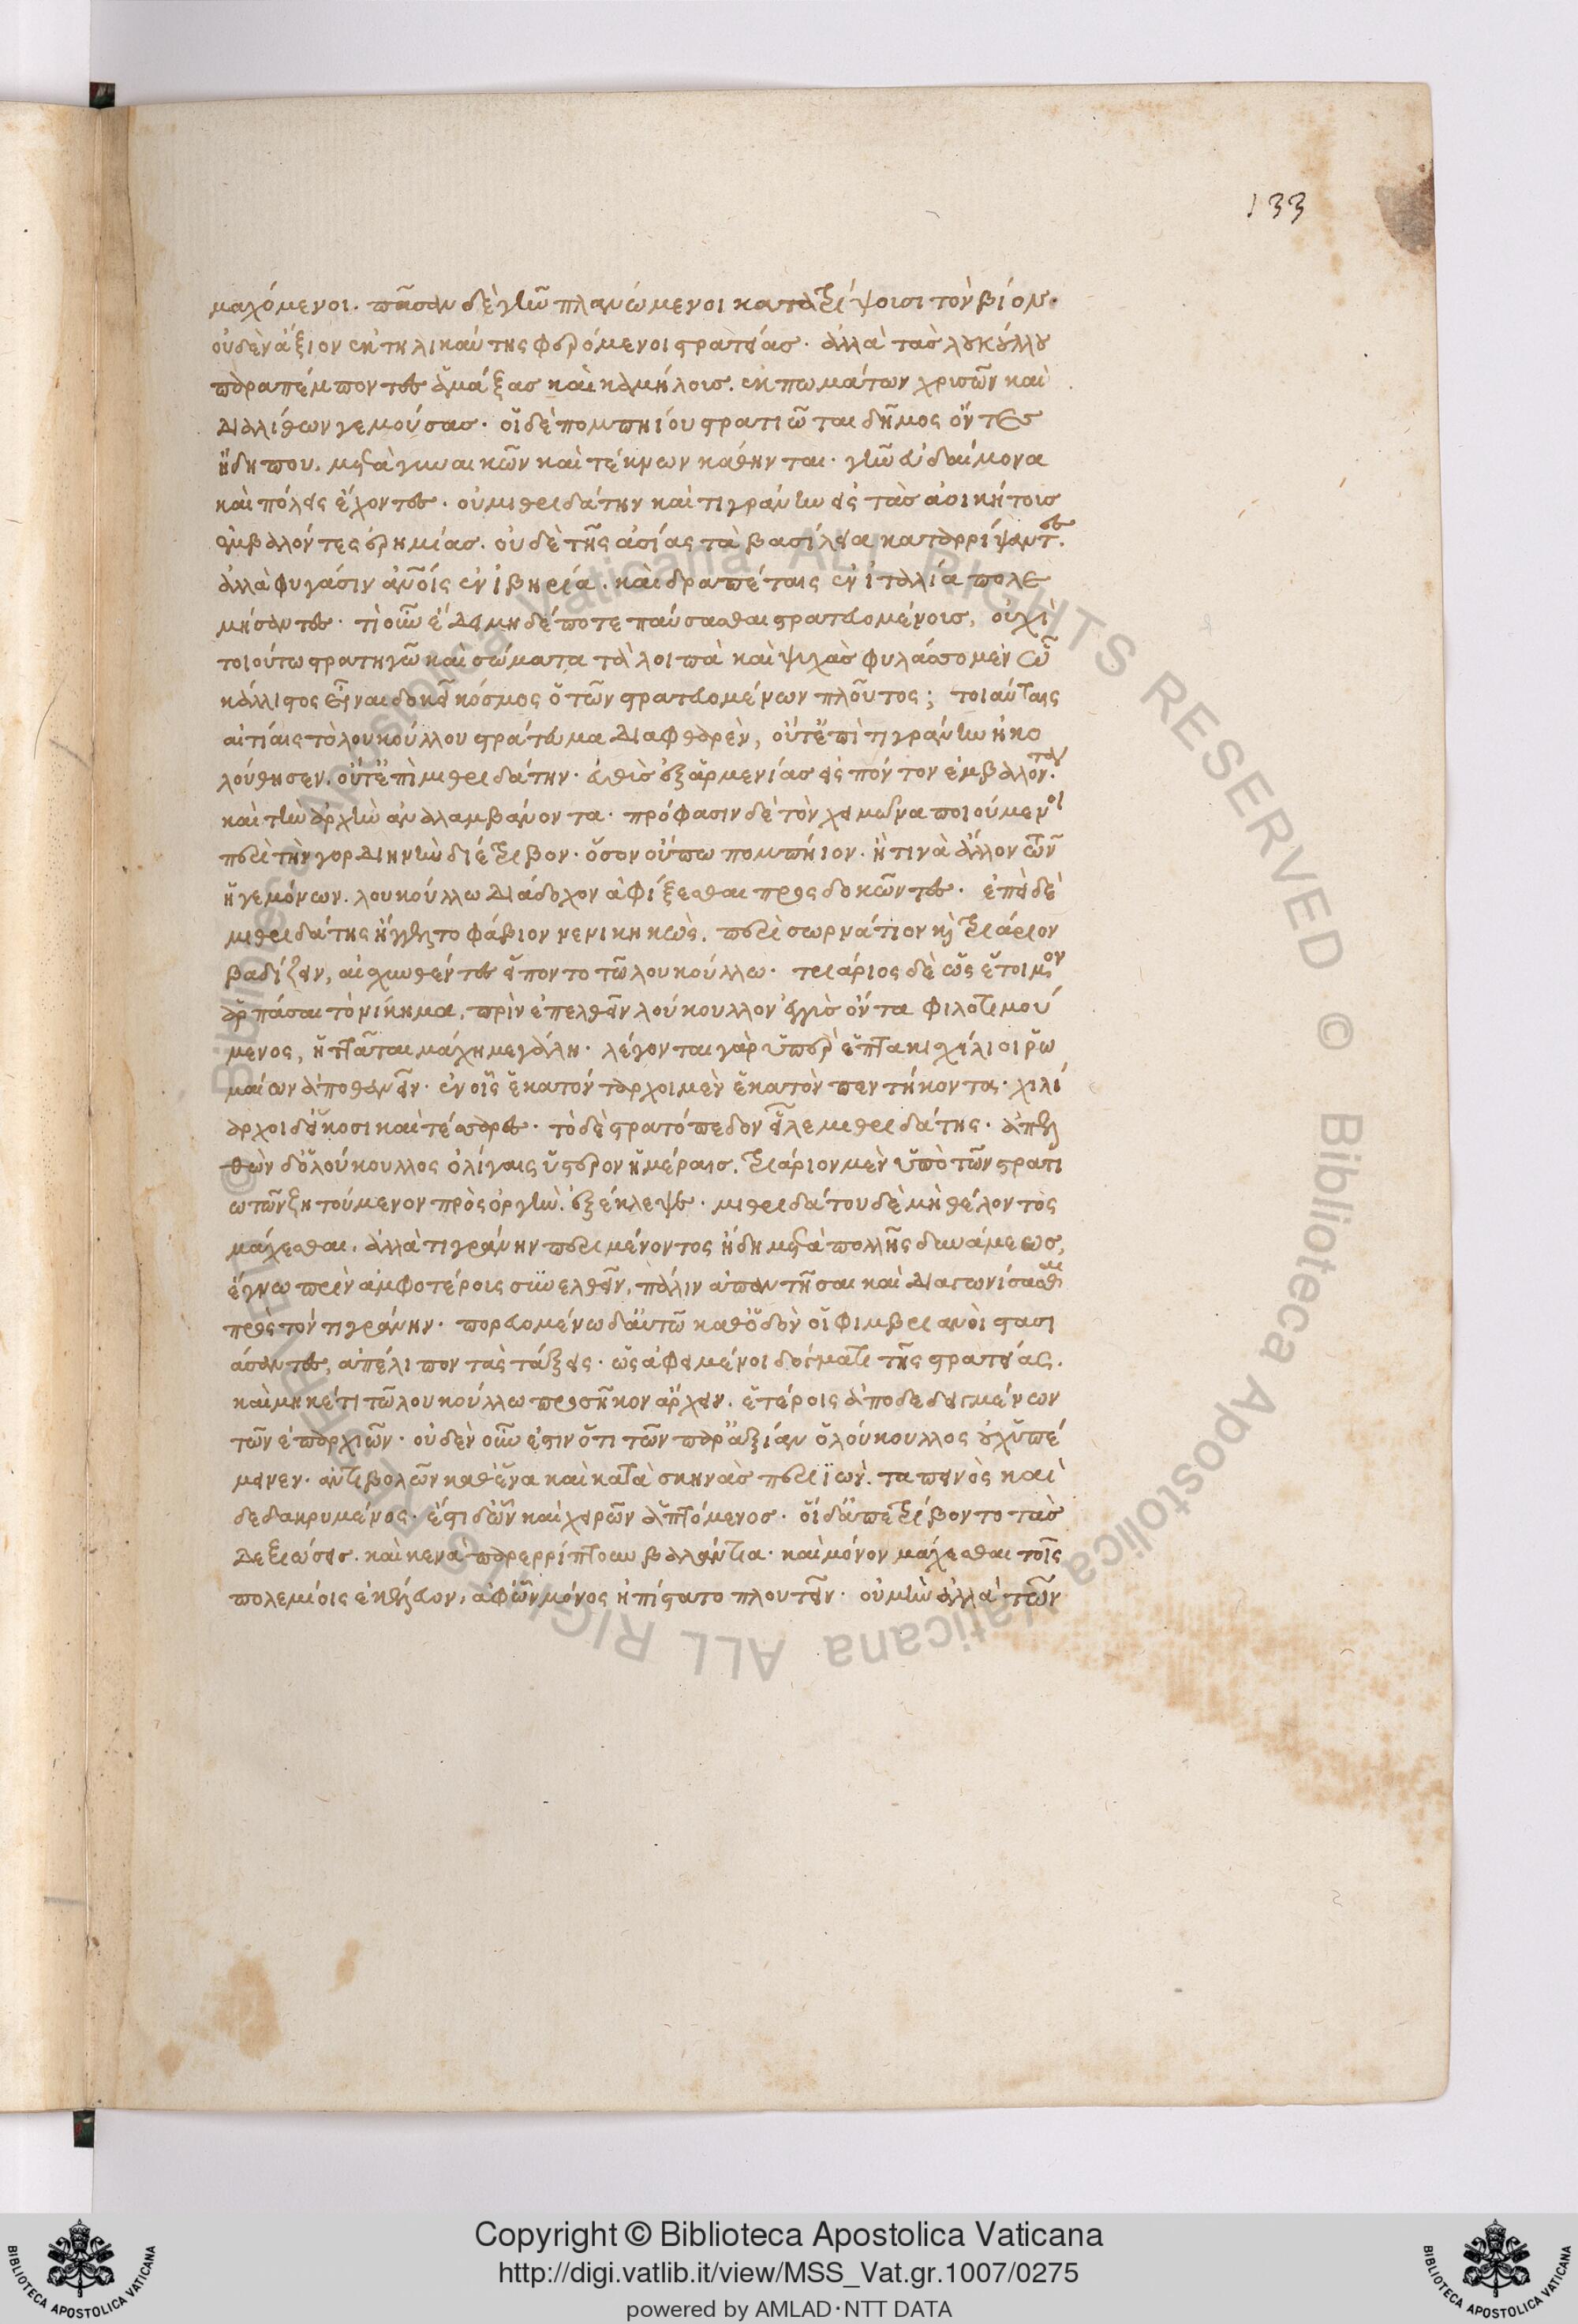 133
μαχόμενοι. πᾶσαν δὲ γῆν πλανώμενοι κατατρίψοισι τὸν βίον.
οὐδὲν ἄξιον ἐκ τηλικαύτης φερόμενοι στρατείας. ἀλλὰ τὰς λουκούλλου
παραπέμποντες ἁμάξας καὶ καμήλοις. ἐκπωμάτων χρισῶν καὶ
διαλίθων γεμούσας. οἱ δὲ πομπηίου στρατιῶται δῆμος ὄντες
ἤδη που. μετὰ γυναικῶν καὶ τέκνων κάθηνται. γῆν εὐδαίμονα
καὶ πόλεις ἔχοντες. οὐ μιθριδάτην καὶ τιγράνην εἰς τὰς ἀοικήτοις
ἐμβαλόντες ἐρημίας. οὐδὲ τῆς ἀσίας τὰ βασίλεια καταρρίψαντες.
ἀλλὰ φυγάσιν αὐτοῖς ἐν ἰβηρία. καὶ δραπέταις ἐν ἰταλία πολε
μήσαντες. τί οὖν ἔδει μηδέποτε παύσασθαι στρατευομένοις, οὐχὶ
τοιούτω στρατηγῶ καὶ σώματα τὰ λοιπὰ καὶ ψιχὰς φυλάσσομεν ὧ
κάλλιστος εἶναι δοκεῖ κόσμος ὁ τῶν στρατευομένων πλοῦτος; τοιαύταις
αἰτίαις τὸ λουκούλλου στράτευμα διαφθαρὲν, οὔτ' ἐπὶ τιγράνην ἠκο
λούθησεν. οὔτ' ἐπὶ μιθριδάτην. αὖθις ἐξ ἀρμενίας εἰς πόντον ἐμβαλόντα
καὶ τὴν ἀρχὴν ἀναλαμβάνοντα. πρόφασιν δὲ τὸν χειμῶνα ποιούμενοι
περὶ τὴν γορδιηνὴν διέτριβον. ὅσον οὔπω πομπήιον. ἤ τινα ἄλλον τῶν
ἡγεμόνων. λουκούλλω διάδοχον ἀφίξεσθαι προσδοκῶντες. ἐπεὶ δὲ
μιθριδάτης ἤγγελτο φάβιον νενικηκὼς. περὶ σωρνάτιον καὶ τριάριον
βαδίζειν, αἰσχυνθέντες εἵποντο τῶ λουκούλλω. τριάριος δὲ ὡς ἕτοιμον
ἁρπάσαι τὸ νίκημα, πρὶν ἐπελθεῖν λούκουλλον ἐγγὺς ὄντα φιλοτιμού
μενος, ἡττᾶται μάχη μεγάλη. λέγονται γὰρ ὑπὲρ ἑπτακισχίλιοι ῥω
μαίων ἀποθανεῖν. ἐν οἷς ἑκατόνταρχοι μὲν ἑκατὸν πεντήκοντα. χιλί
αρχοι δ' εἴκοσι καὶ τέσσαρες. τὸ δὲ στρατόπεδον εἷλε μιθριδάτης. ἀπελ
θὼν δ' ὁ λούκουλλος ὀλίγαις ὕστερον ἡμέραις. τριάριον μὲν ὑπὸ τῶν στρατι
ωτῶν ζητούμενον πρὸς ὀργὴν. ἐξέκλεψε. μιθριδάτου δὲ μὴ θέλοντος
μάχεσθαι. ἀλλὰ τιγράνην περιμένοντος ἤδη μετὰ πολλῆς δυνάμεως,
ἔγνω πρὶν ἀμφοτέροις συνελθεῖν, πάλιν ἀπαντῆσαι καὶ διαγωνίσασθαι
πρὸς τὸν τιγράνην. πορευομένω δ' αὐτῶ καθ' ὁδὸν οἱ φιμβριανοὶ στασι
άσαντες, ἀπέλιπον τὰς τάξεις. ὡς ἀφειμένοι δόγματι τῆς στρατείας.
καὶ μηκέτι τῶ λουκούλλω προσῆκον ἄρχειν. ἑτέροις ἀποδεδειγμένων
τῶν ἐπαρχιῶν. οὐδὲν οὖν ἐστιν ὅτι τῶν παρ' ἀξίαν ὁ λούκουλλος οὐχ ὑπέ
μεινεν. ἀντιβολῶν καθ' ἕνα καὶ κατὰ σκηνὰς περιϊὼν. ταπεινὸς καὶ
δεδακρυμένος. ἔστι δ' ὧν καὶ χειρῶν ἁπτόμενος. οἱ δ' ἀπετρίβοντο τὰς
δεξιώσεις. καὶ κενὰ παρερρίπτουν βαλάντια. καὶ μόνον μάχεσθαι τοῖς
πολεμίοις ἐκέλευον, ἀφ' ὧν μόνος ἠπίστατο πλουτεῖν. οὐ μὴν ἀλλὰ τῶν
Copyright © Biblioteca Apostolica Vaticana
http://digi.vatlib.it/view/MSS_Vat.gr.1007/0275
powered by AMLAD·NTT DATA